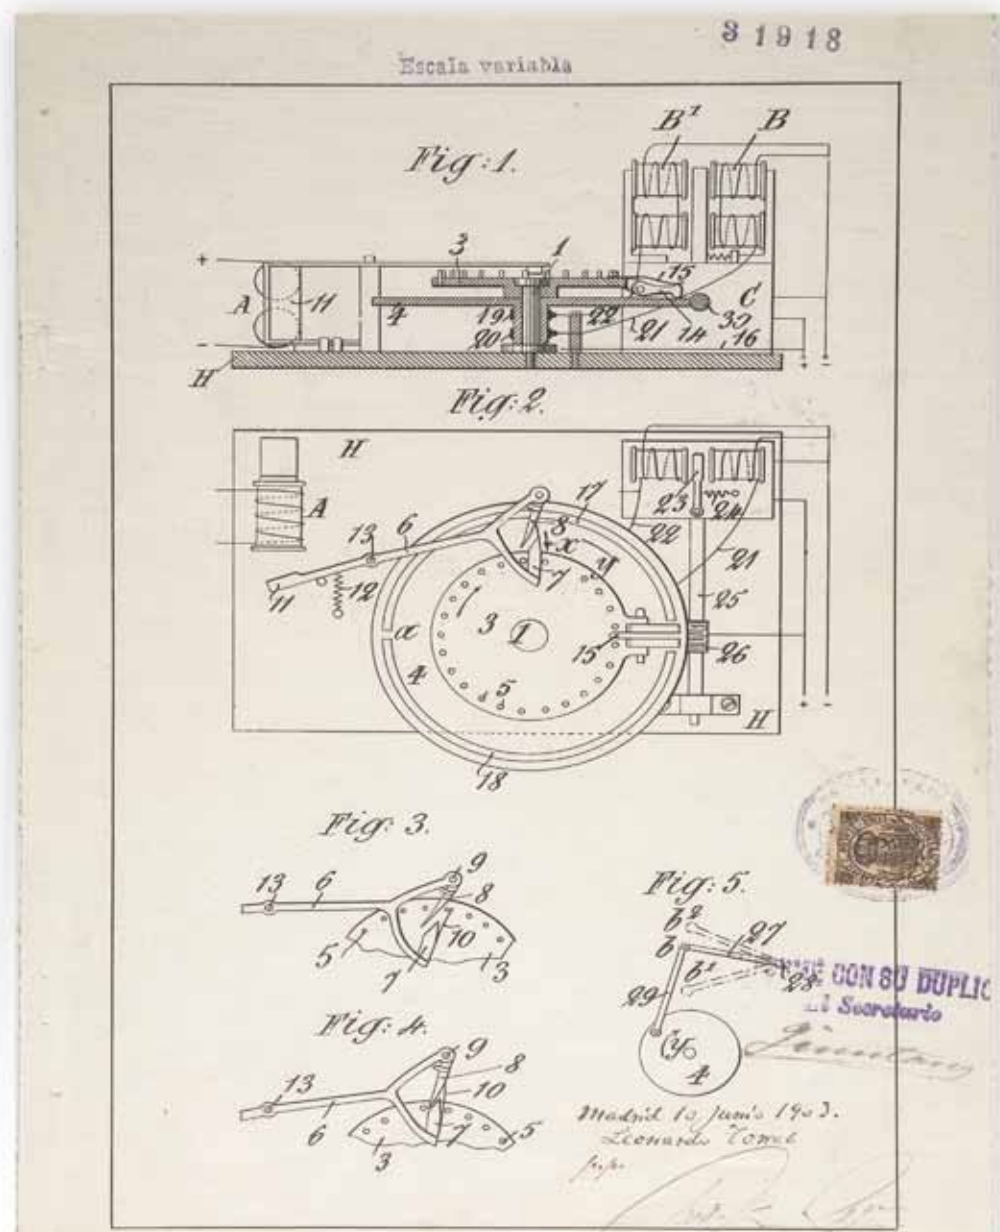 31918
Escala variabla
Fig: 1.
B¹ B
+ 3 1 15
A 11 4 19 22 21 14 C 30
- 20 16
H + -
Fig: 2.
H
A 13 6 8 17 23 24
x 22
7 y 21
11 12 25
a 3 1 15 26
4 5
H + -
18
Fig: 3.
9
13 6 8
10
5 7 3
Fig: 4.
9
13 8
10
6 3 7 5
Fig: 5.
b² 27
b
b¹ 28
29
y
4
CON SU DUPLIC
El Secretario
Madrid 10 Junio 1903.
Leonardo Torres